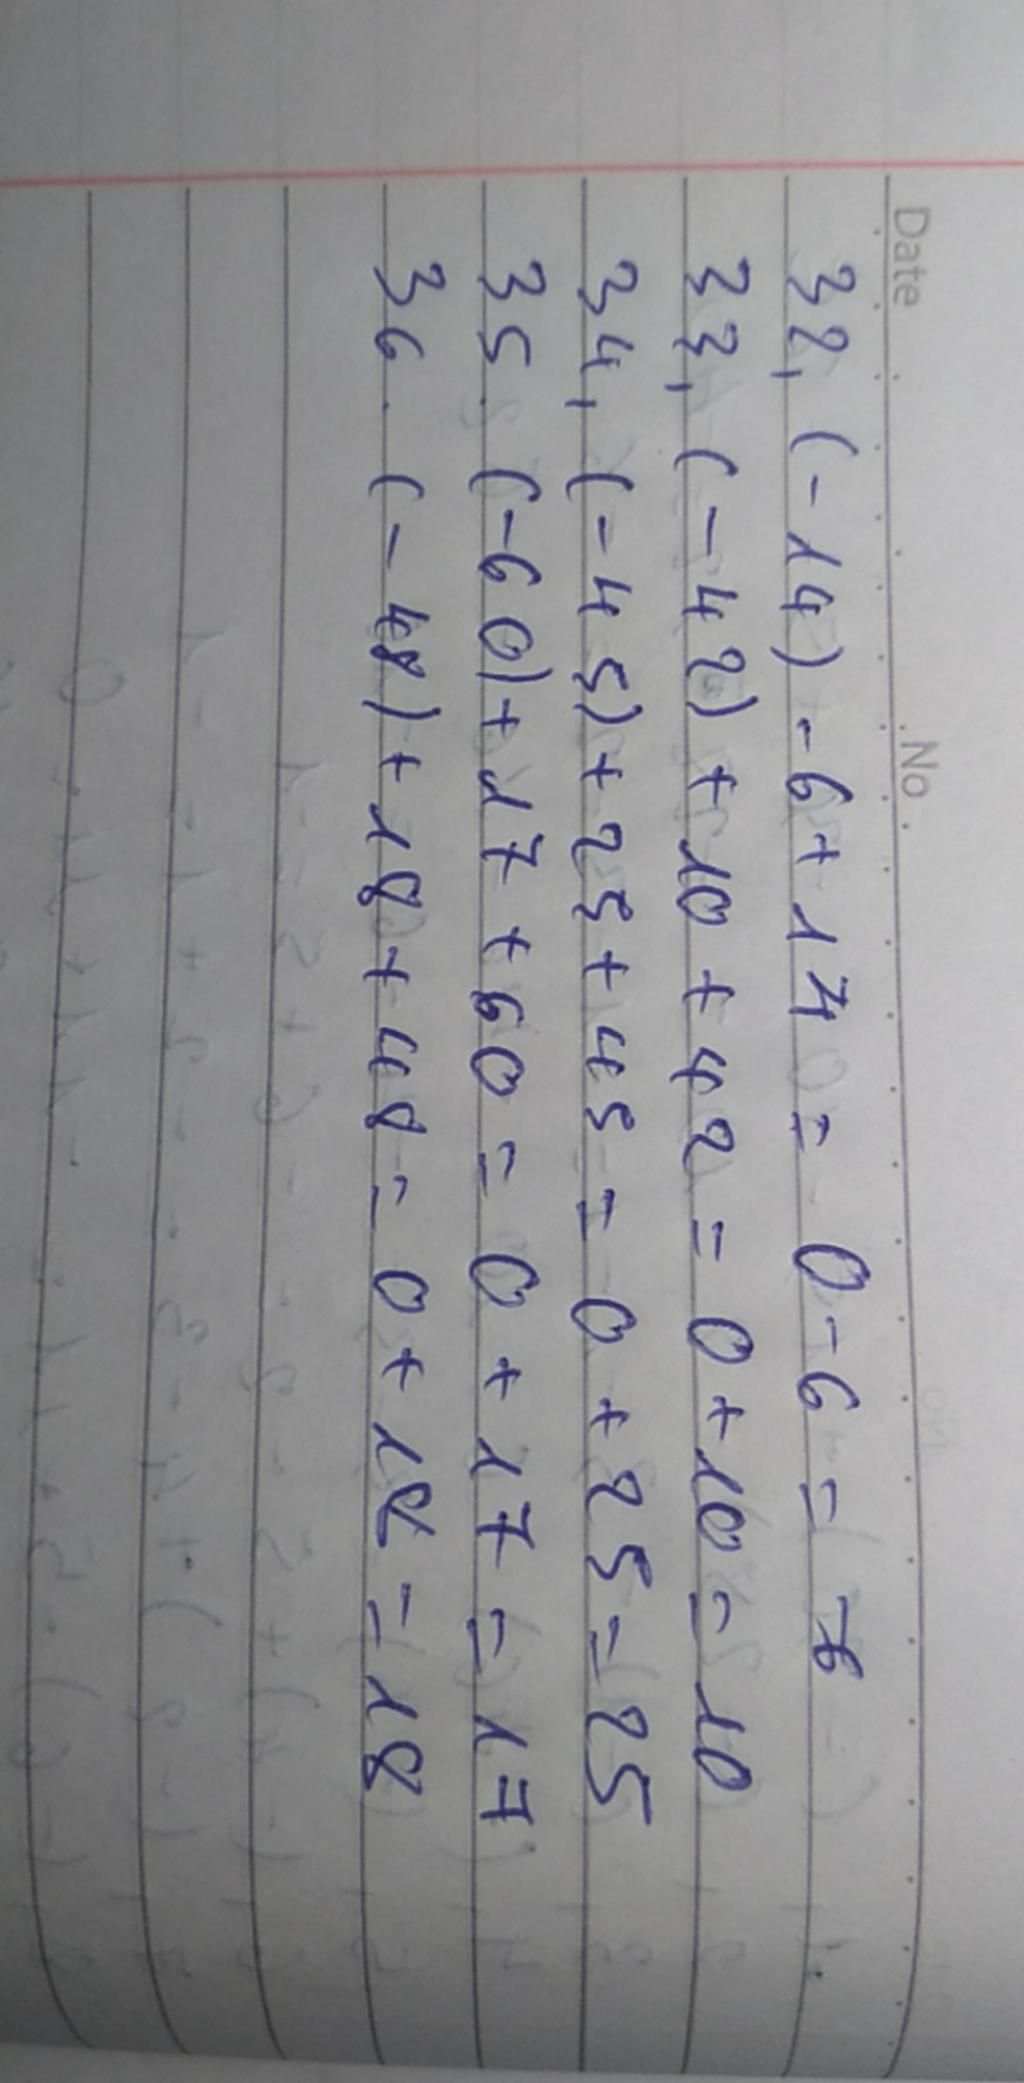 Date No.
32, (-14) - 6 + 14 = 0 - 6 = -6
33, (-42) + 10 + 42 = 0 + 10 = 10
34, (-45) + 25 + 45 = 0 + 25 = 25
35. (-60) + 17 + 60 = 0 + 17 = 17
36. (-48) + 18 + 48 = 0 + 18 = 18